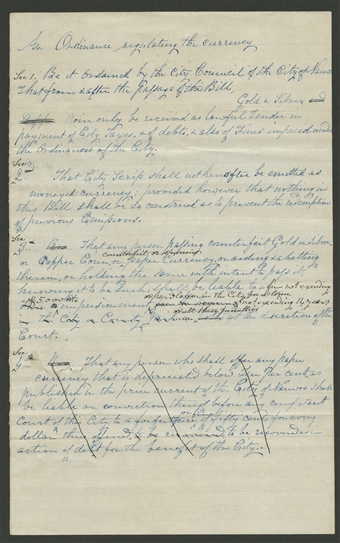 An Ordinance regulating the currency
Sec 1. Be it ordained by the City Council of the City of Nauvoo
That from & after the passage of the Bill,
Gold & Silver and
Coin only be received as lawful tender in
payment of City Taxes, & of debts, & also of Fines imposed under
the Ordinances of the City.
Sec
2 That City Scrip shall not hereafter be emitted as
moneyed currency; provided however that nothing in
this Bill shall be so construed as to prevent the redemption
of previous Emissions.
Sec
3 That any person passing counterfeit Gold or Silver,
counterfeit or
or Copper Coin, or Paper Currency, or aiding & abetting
therein, or holding the same with intent to pass it
knowing it to be such, shall be liable to a fine not exceeding
or hard labor in the City
imprisonment not exceeding 14 years
or all these punishments
at the discretion of the
Court.
Sec
4 That any person who shall offer any paper
currency that is depreciated below
published in the price current of the City of Nauvoo shall
be liable on conviction thereof before any competent
Court of the City to a forfeiture of fifty cents for every
dollar thus offered, to be recovered in
action of debt for the benefit of the City.